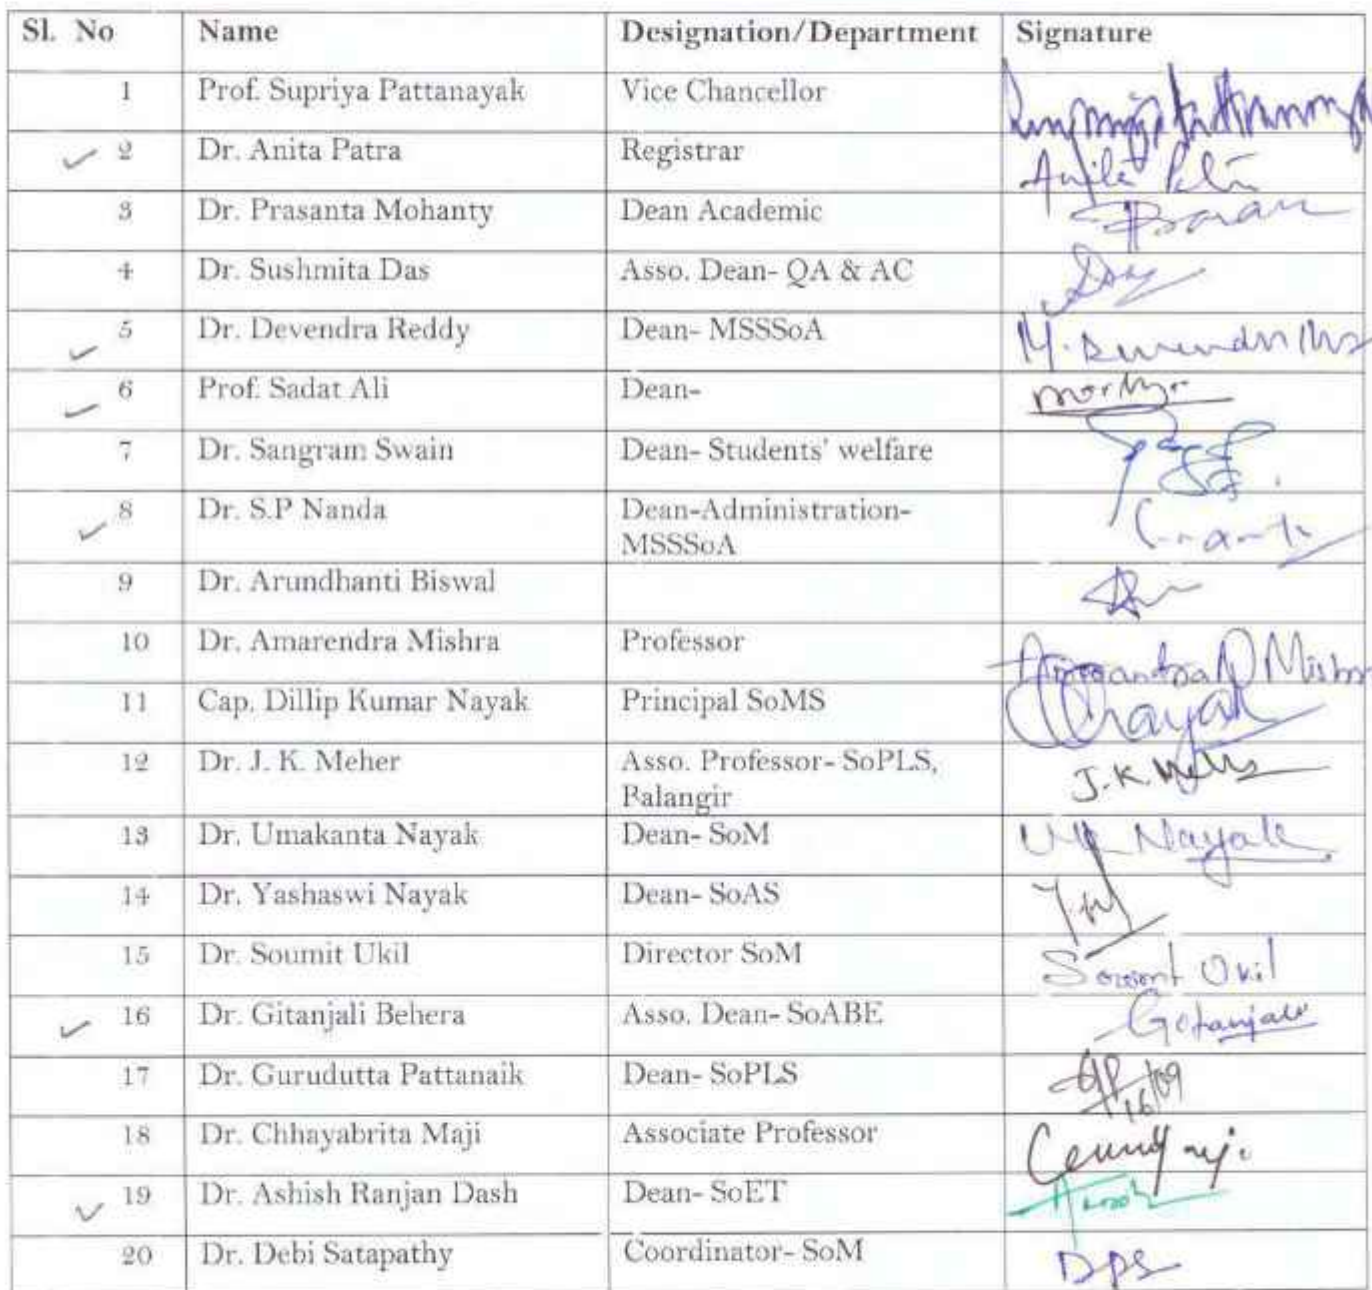 Sl. No Name Designation/Department Signature
1 Prof. Supriya Pattanayak Vice Chancellor
2 Dr. Anita Patra Registrar Anita Patra
3 Dr. Prasanta Mohanty Dean Academic
4 Dr. Sushmita Das Asso. Dean- QA & AC
5 Dr. Devendra Reddy Dean- MSSSoA
6 Prof. Sadat Ali Dean-
7 Dr. Sangram Swain Dean- Students' welfare
8 Dr. S.P Nanda Dean-Administration-
MSSSoA
9 Dr. Arundhanti Biswal
10 Dr. Amarendra Mishra Professor Mishra
11 Cap. Dillip Kumar Nayak Principal SoMS Nayak
12 Dr. J. K. Meher Asso. Professor- SoPLS, J.K. Meher
Balangir
13 Dr. Umakanta Nayak Dean- SoM Nayak
14 Dr. Yashaswi Nayak Dean- SoAS
15 Dr. Soumit Ukil Director SoM Soumit Ukil
16 Dr. Gitanjali Behera Asso. Dean- SoABE Gitanjali
17 Dr. Gurudutta Pattanaik Dean- SoPLS 16/09
18 Dr. Chhayabrita Maji Associate Professor
19 Dr. Ashish Ranjan Dash Dean- SoET
20 Dr. Debi Satapathy Coordinator- SoM DPS